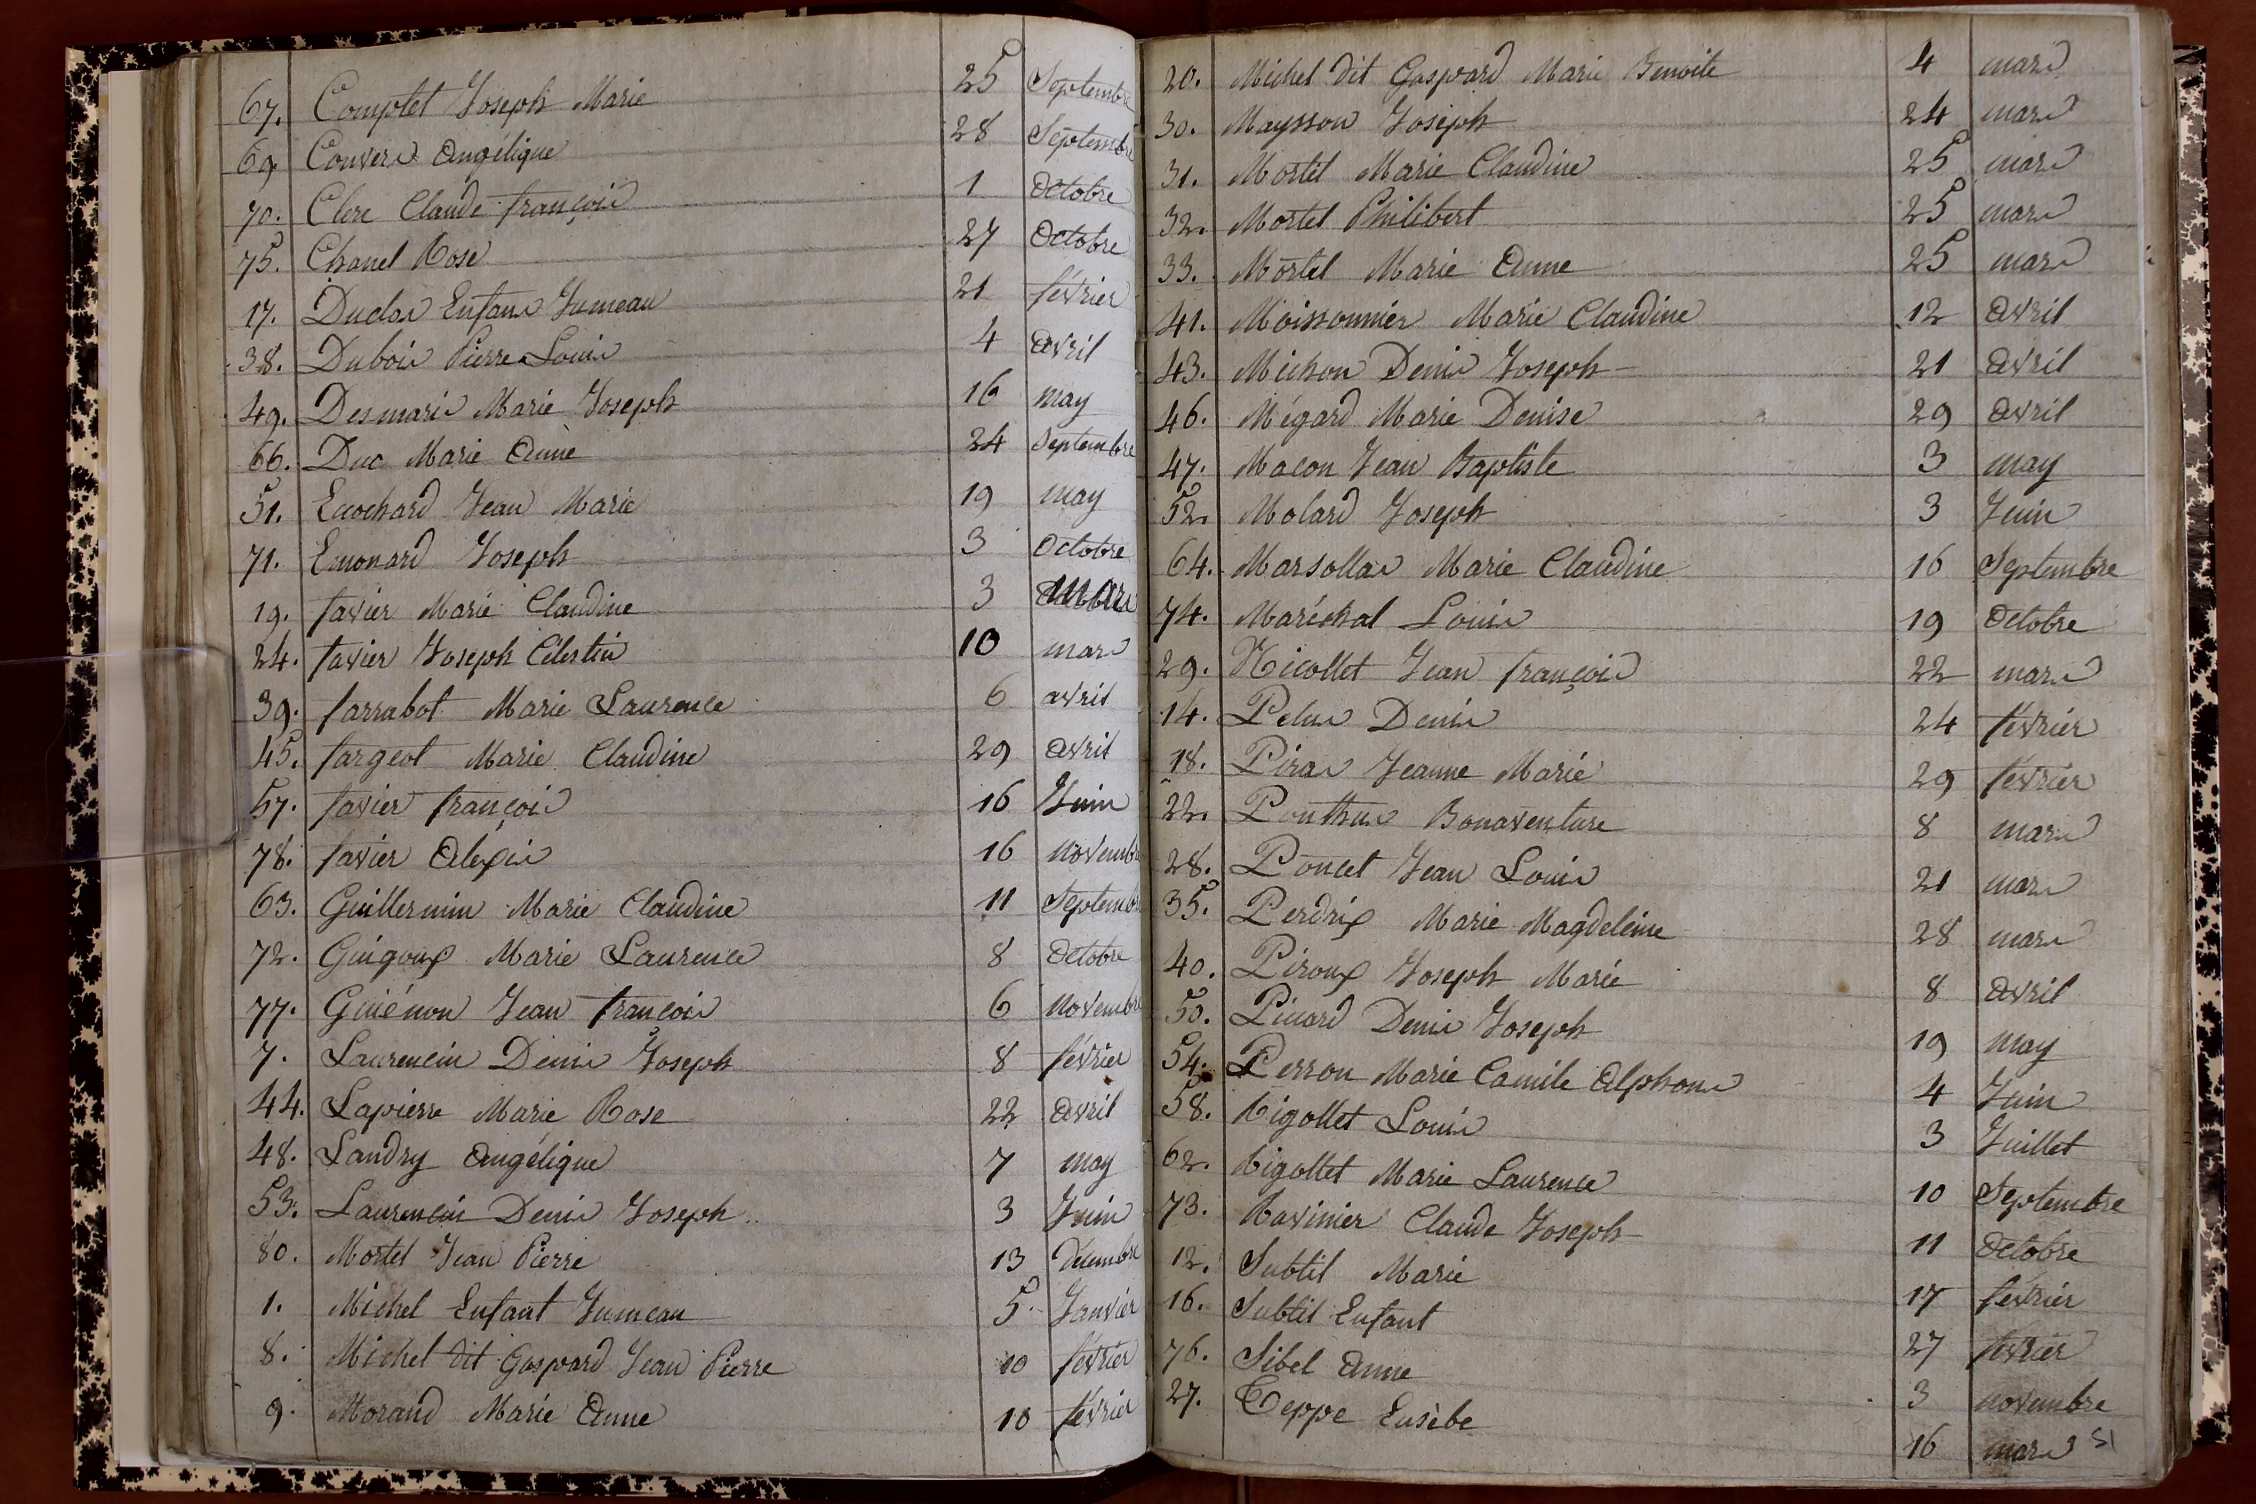 67. Comptet Joseph Marie 25 Septembre
69 Convers Angélique 28 Septembre
70. Clerc Claude françois 1 Octobre
75. Chanel Rose 27 Octobre
17. Duclos Enfans Jumeau 21 février
38. Dubois Pierre Louis 4 Avril
49. Desmaris Marie Joseph 16 may
66. Duc Marie Anne 24 Septembre
51. Ecochard Jean Marie 19 may
71. Emonard Joseph 3 Octobre
19. favier Marie Claudine 3 Mars
24. favier Joseph Célestin 10 mars
39. farrabot Marie Laurence 6 avril
45. fargeot Marie Claudine 29 Avril
57. favier françois 16 Juin
78. favier Alexis 16 novembre
63. Guillermin Marie Claudine 11 Septembre
72. Guigoux Marie Laurence 8 Octobre
77. Guiénon Jean françois 6 novembre
7. Laurencin Denis Joseph 8 février
44. Lapierre Marie Rose 22 Avril
48. Landry Angélique 7 may
53. Laurencin Denis Joseph 3 Juin
80. Mortel Jean Pierre 13 Décembre
1. Michel Enfant Jumeau 5 Janvier
8. Michel dit Gaspard Jean Pierre 10 février
9. Morand Marie Anne 10 février
20. Michel dit Gaspard Marie Benoite 4 mars
30. Maysson Joseph 24 mars
31. Mortel Marie Claudine 25 mars
32. Mortel Philibert 25 mars
33. Mortel Marie Anne 25 mars
41. Moissonnier Marie Claudine 12 Avril
43. Michon Denis Joseph 21 Avril
46. Mégard Marie Denise 29 Avril
47. Macon Jean Baptiste 3 may
52. Molard Joseph 3 Juin
64. Marsollas Marie Claudine 16 Septembre
74. Maréchal Louis 19 Octobre
29. Nicollet Jean françois 22 mars
14. Pelus Denis 24 février
18. Piras Jeanne Marie 29 février
22. Ponthus Bonaventure 8 mars
28. Poncet Jean Louis 21 mars
35. Perdrix Marie Magdeleine 28 mars
40. Piroux Joseph Marie 8 Avril
50. Picard Denis Joseph 19 may
54. Perron Marie Camile Alphonse 4 Juin
58. Rigollet Louis 3 Juillet
62. Rigollet Marie Laurence 10 Septembre
73. Ravinier Claude Joseph 11 Octobre
12. Subtil Marie 17 février
16. Subtil Enfant 27 février
76. Sibel Anne 3 novembre
27. Teppe Eusèbe 16 mars
51